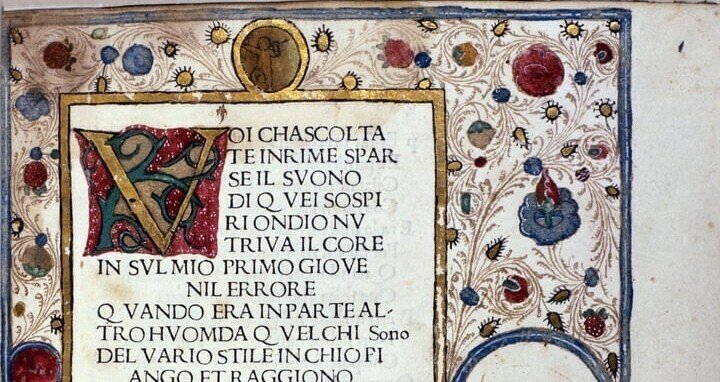 VOI CHASCOLTA
TE INRIME SPAR
SE IL SVONO
DI QVEI SOSPI
RI ONDIO NV
TRIVA IL CORE
IN SVL MIO PRIMO GIOVE
NIL ERRORE
QVANDO ERA IN PARTE AL-
TRO HVOMDA QVEL CHI Sono
DEL VARIO STILE IN CHIO PI
ANGO ET RAGGIONO